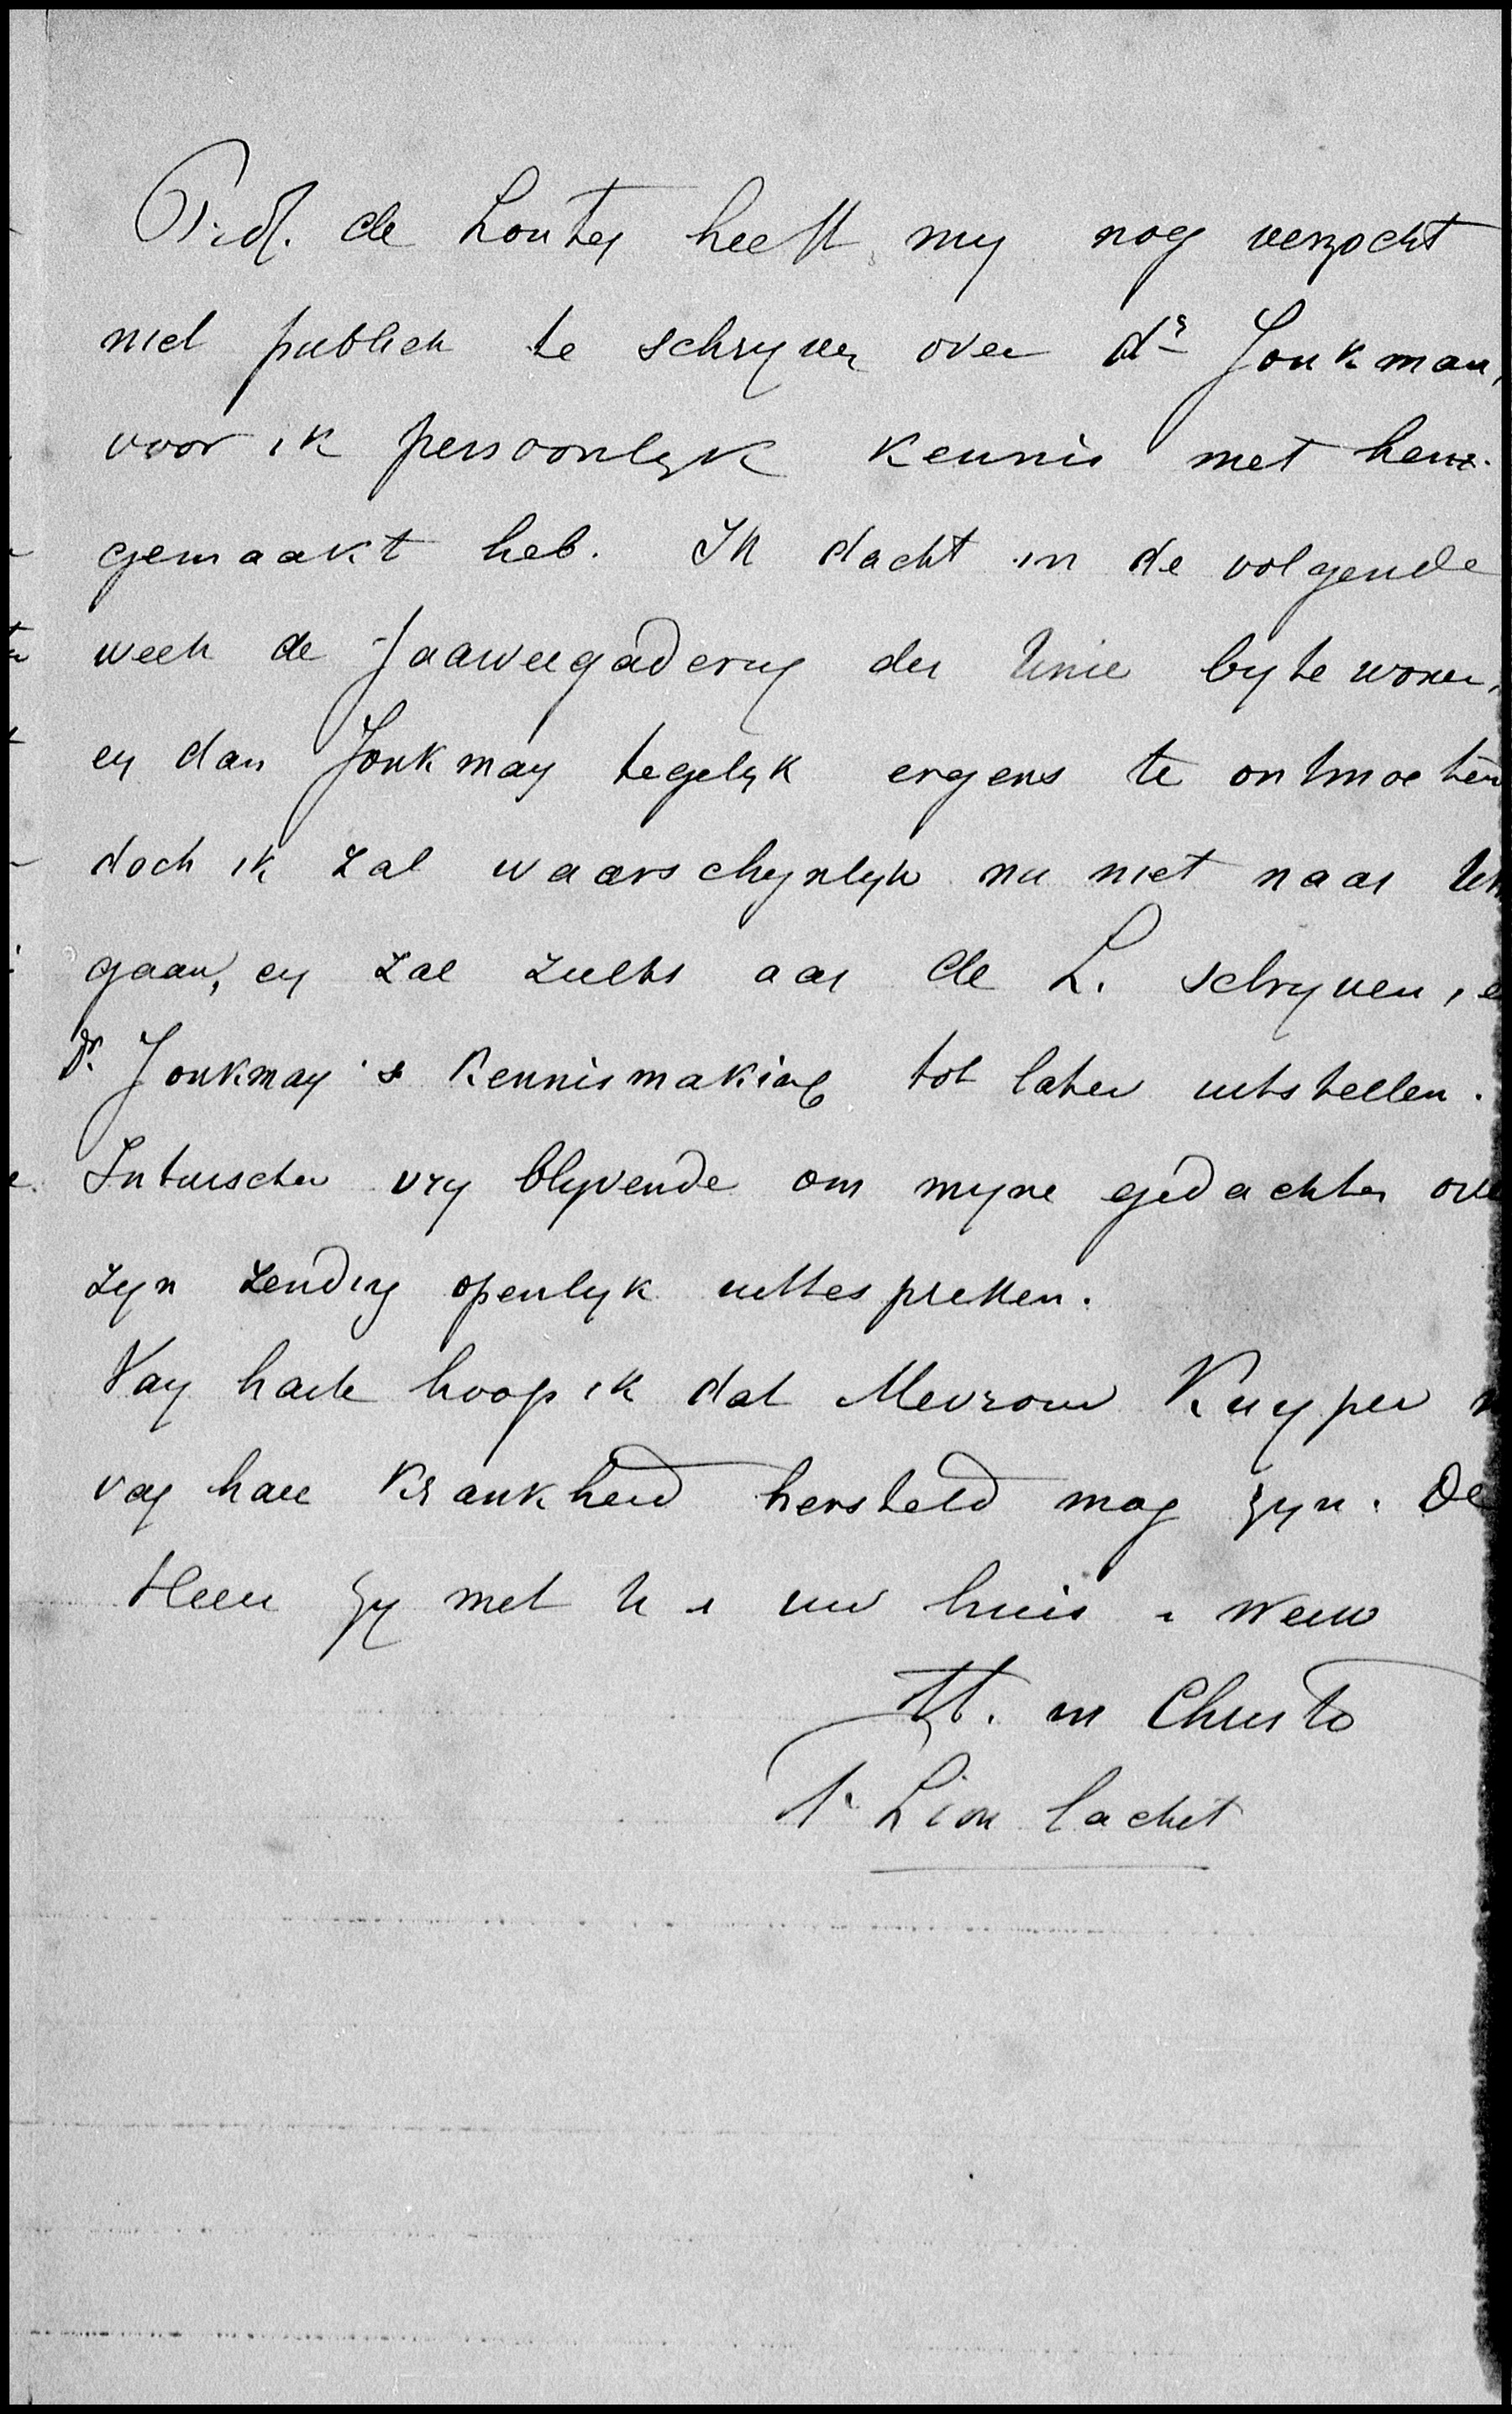 Prof. de Louter heeft my nog verzocht
niet publiek te schryven over dr Jonkman,
voor ik persoonlyk kennis met hem
gemaakt heb. Ik dacht in de volgende
week de Jaarvergadering der Unie by te wonen,
en dan Jonkman tegelyk ergens te ontmoeten
doch ik zal waarschynlyk nu niet naar
gaan, en zal zulks aan de L. schryven,
Dr. Jonkman's kennismaking tot later uitstellen.
Intusschen vry blyvende om myne gedachten over
zyn zending openlyk uittespreken.
Van harte hoop ik dat Mevrouw Kuyper
van hare krankheid hersteld mag zyn. De
Heere zy met U i uw huis i werk
tt. in Christo
F. Lion Cachet